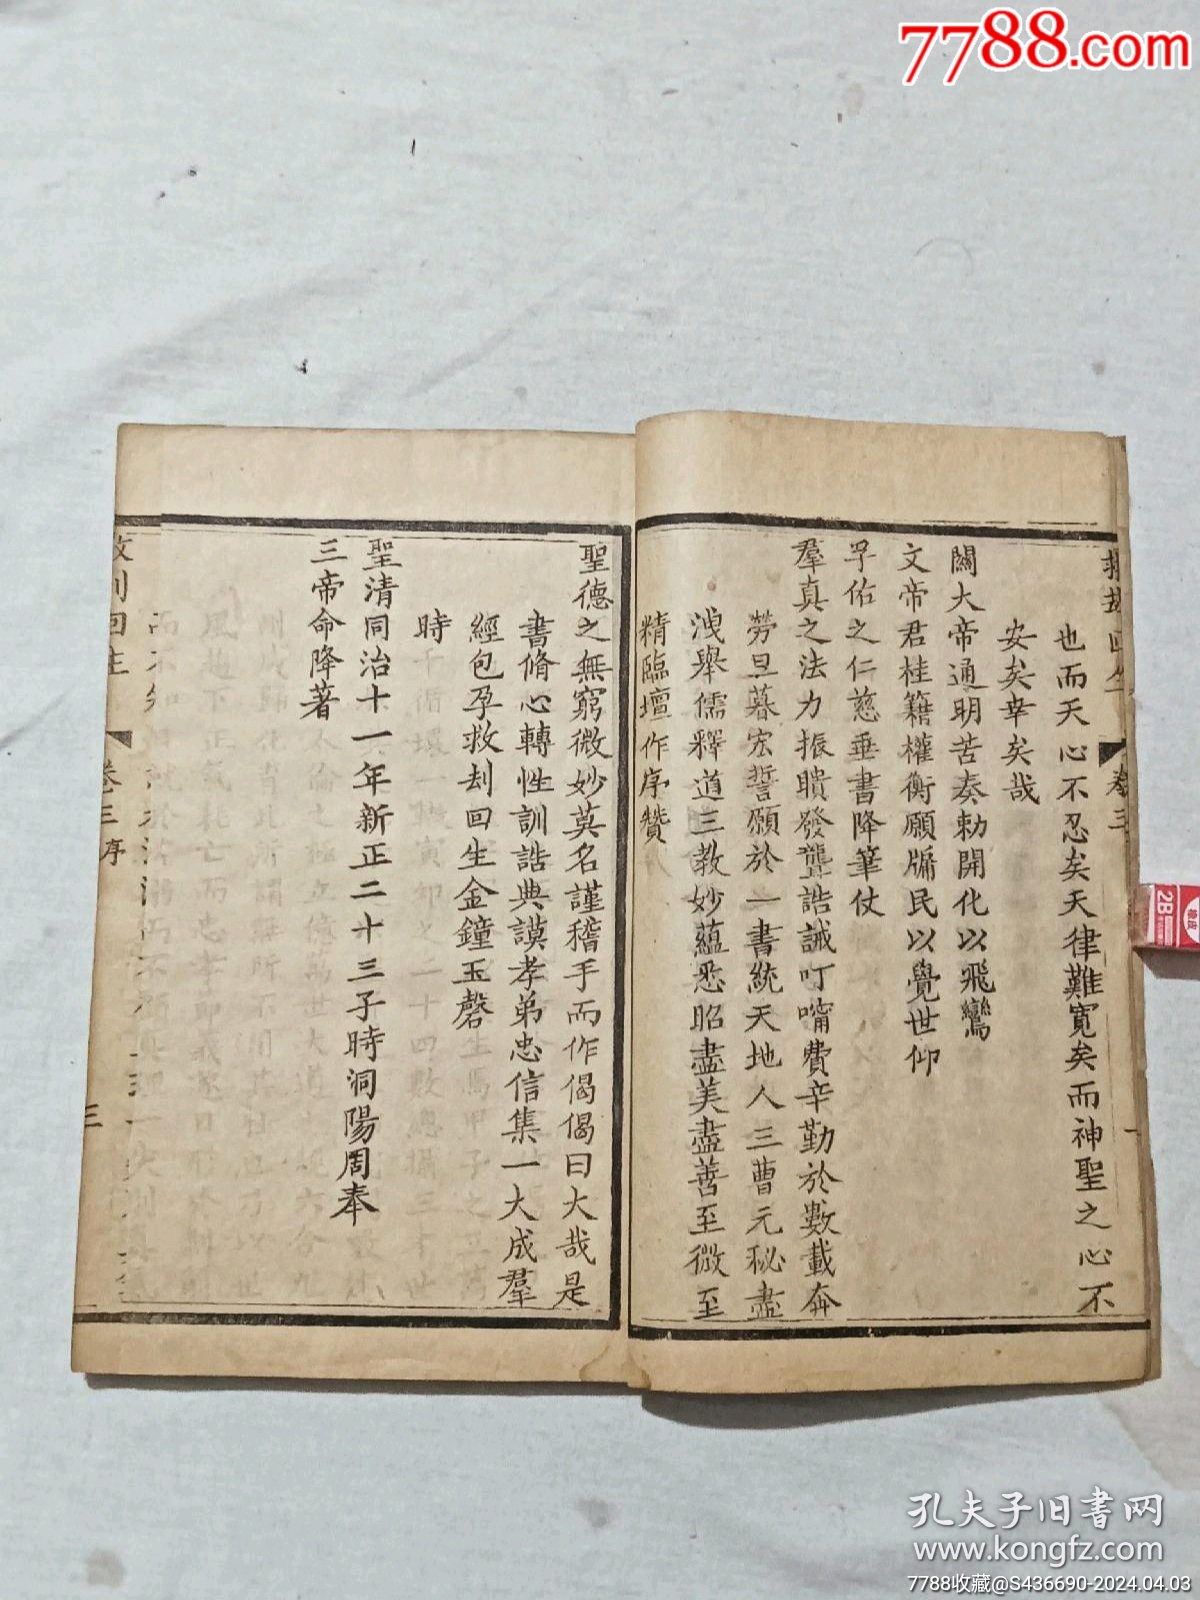 7788.com
也而天心不忍矣天律難寬矣而神聖之心不
安矣幸矣哉
關大帝通明苦奏勅開化以飛鸞
文帝君桂籍權衡願牖民以覺世仰
孚佑之仁慈垂書降筆仗
羣真之法力振聵發聾誥誡叮嚀費辛勤於數載奔
勞旦暮宏誓願於一書統天地人三曹元秘盡
洩舉儒釋道三教妙蘊悉昭盡美盡善至微至
精臨壇作序贊
聖德之無窮微妙莫名謹稽手而作偈偈曰大哉是
書脩心轉性訓誥典謨孝弟忠信集一大成羣
經包孕救刦回生金鐘玉磬
時
聖清同治十一年新正二十三子時洞陽周奉
三帝命降著
卷三序
三
28
孔夫子旧书网
www.kongfz.com
7788收藏@S436690-2024.04.03